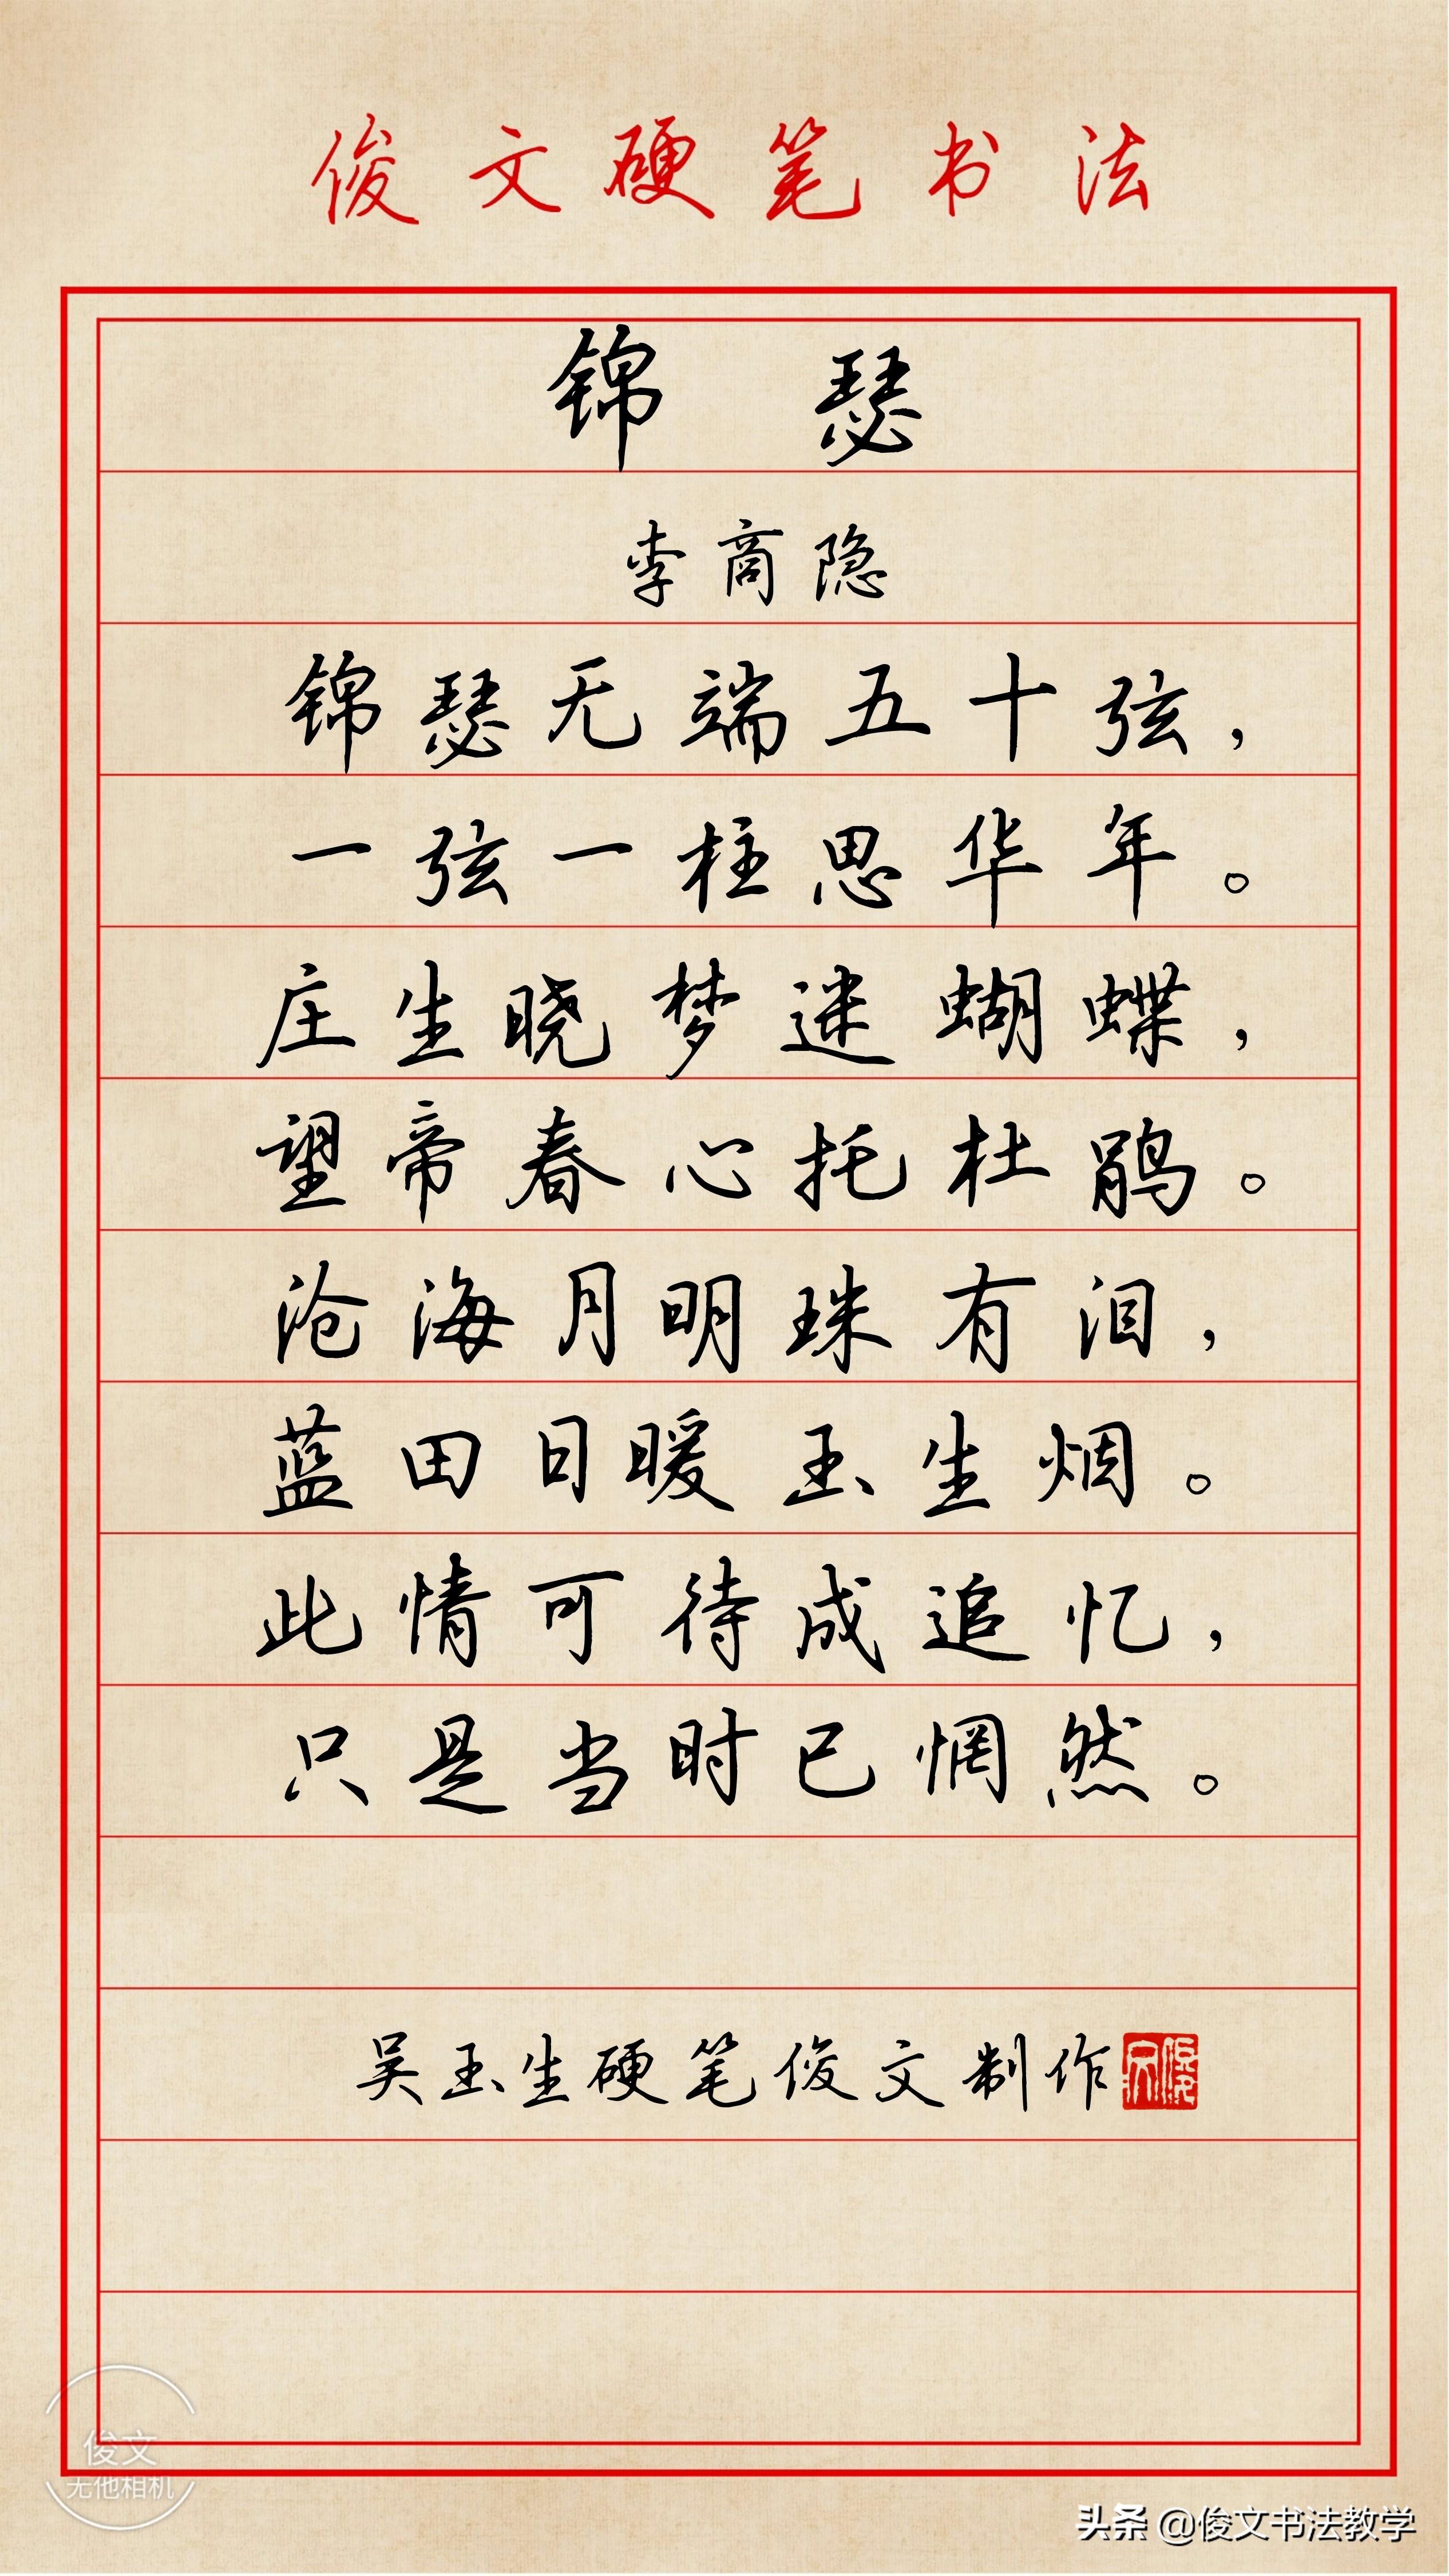 俊文硬笔书法
锦瑟
李商隐
锦瑟无端五十弦，
一弦一柱思华年。
庄生晓梦迷蝴蝶，
望帝春心托杜鹃。
沧海月明珠有泪，
蓝田日暖玉生烟。
此情可待成追忆，
只是当时已惘然。
吴玉生硬笔俊文制作
俊文
俊文
无他相机
头条 @俊文书法教学